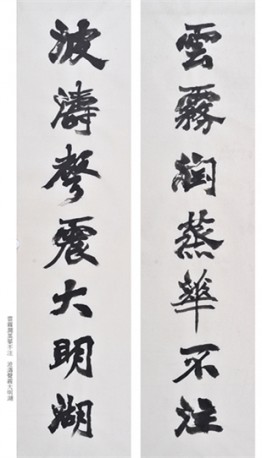 雲霧润蒸華不注
波濤聲震大明湖
雲霧潤蒸華不注 波濤聲震大明湖